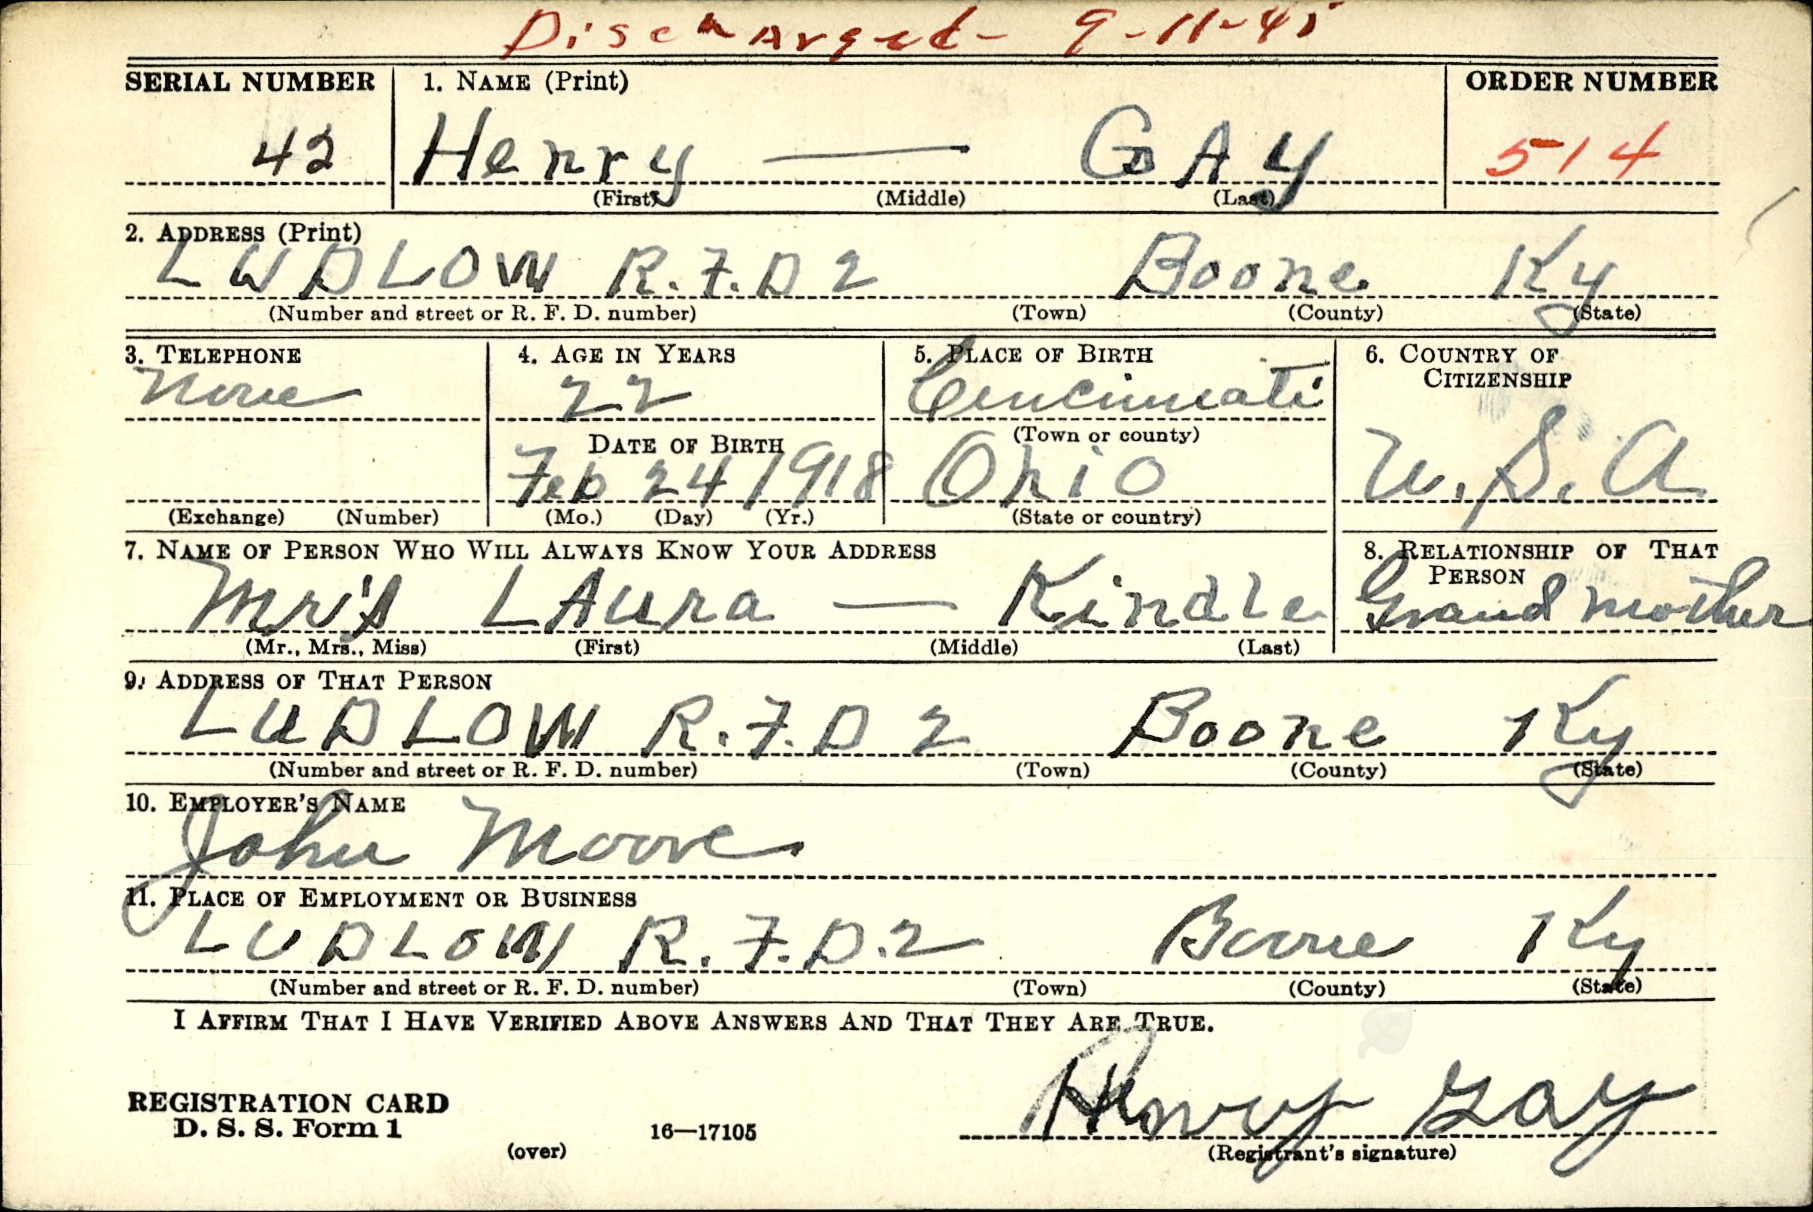 Discharged - 9-11-45
SERIAL NUMBER 1. NAME (Print) ORDER NUMBER
42 Henry — GAy 514
(First) (Middle) (Last)
2. ADDRESS (Print)
LUDLOW R.F.D 2 Boone Ky
(Number and street or R. F. D. number) (Town) (County) (State)
3. TELEPHONE 4. AGE IN YEARS 5. PLACE OF BIRTH 6. COUNTRY OF CITIZENSHIP
None 22 Cincinnati
DATE OF BIRTH (Town or county)
Feb 24 1918 Ohio U.S.A.
(Exchange) (Number) (Mo.) (Day) (Yr.) (State or country)
7. NAME OF PERSON WHO WILL ALWAYS KNOW YOUR ADDRESS 8. RELATIONSHIP OF THAT PERSON
Mr's LAura — Kindle Grand mother
(Mr., Mrs., Miss) (First) (Middle) (Last)
9. ADDRESS OF THAT PERSON
LUDLOW R.F.D 2 Boone Ky
(Number and street or R. F. D. number) (Town) (County) (State)
10. EMPLOYER'S NAME
John Moore
11. PLACE OF EMPLOYMENT OR BUSINESS
LUDLOW R.F.D.2 Boone Ky
(Number and street or R. F. D. number) (Town) (County) (State)
I AFFIRM THAT I HAVE VERIFIED ABOVE ANSWERS AND THAT THEY ARE TRUE.
REGISTRATION CARD
D. S. S. Form 1 Henry Gay
(over) 16—17105 (Registrant's signature)